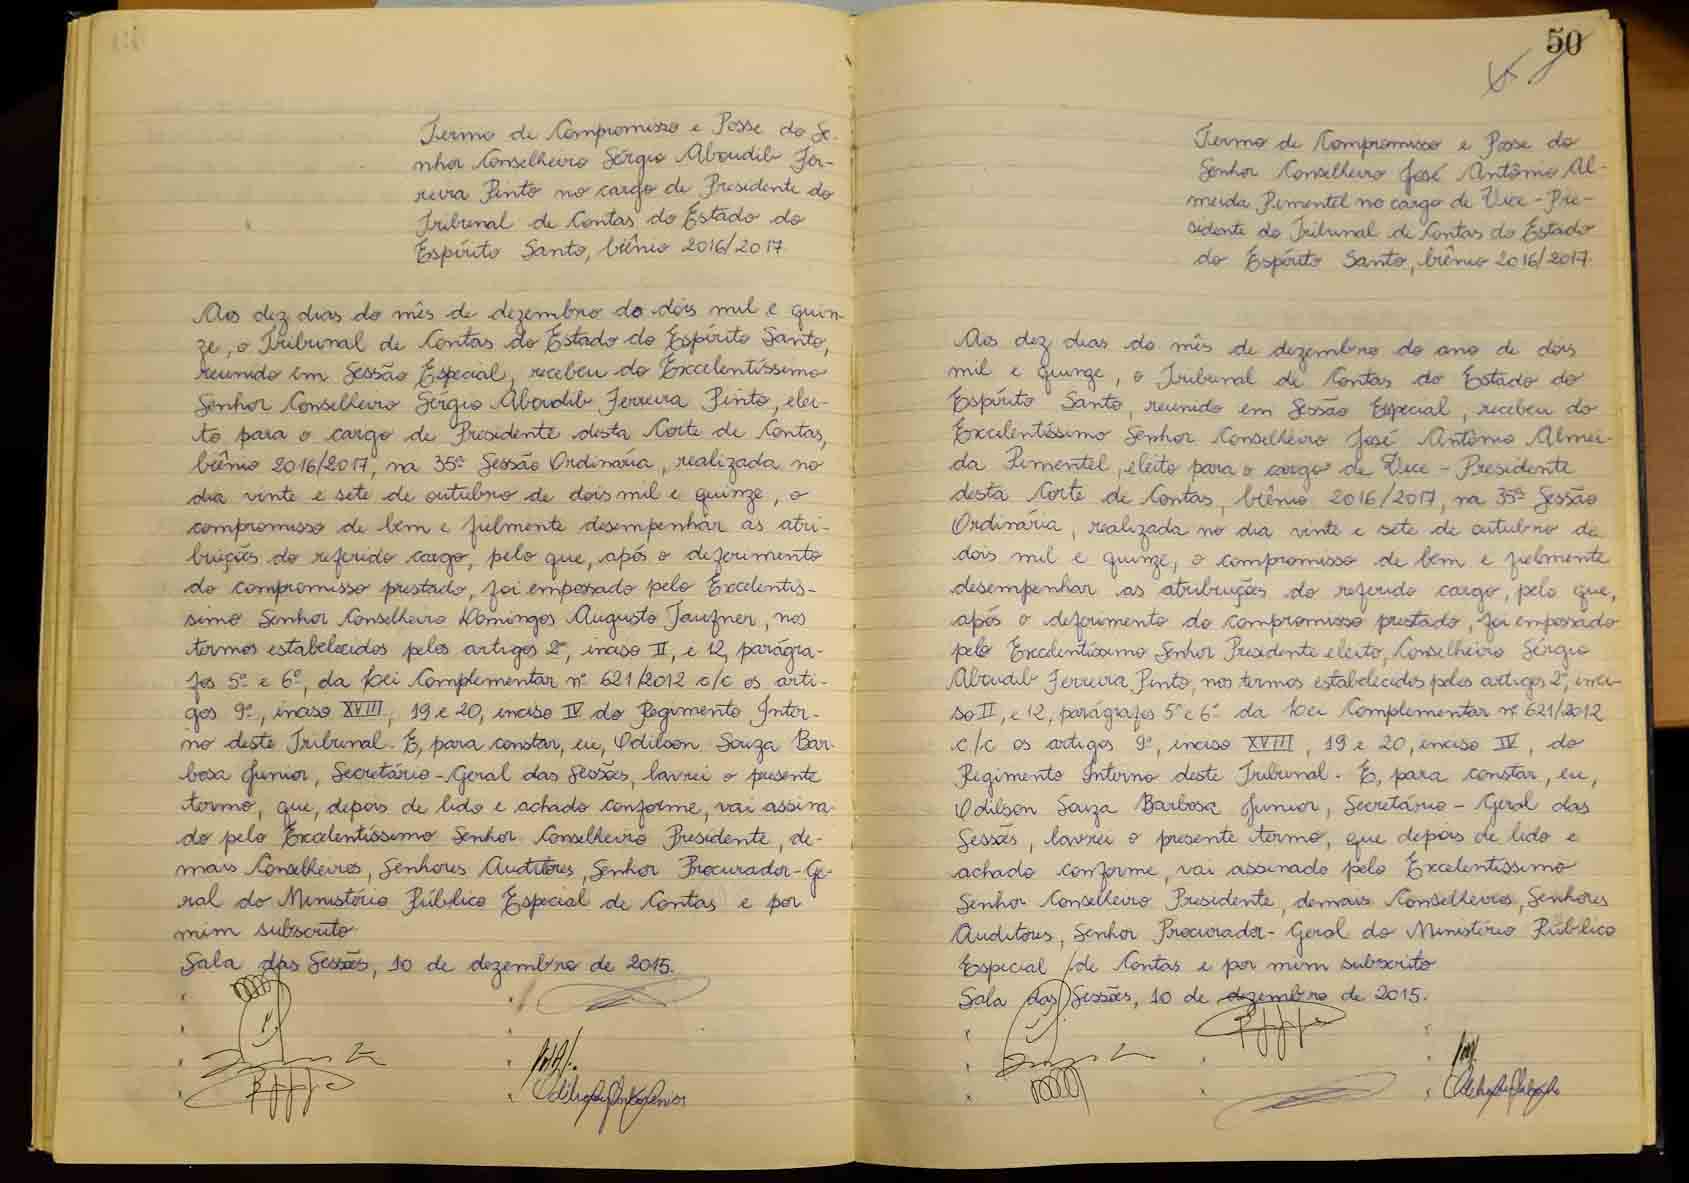 Termo de Compromisso e Posse do Se-
nhor Conselheiro Sérgio Aboudib Fer-
reira Pinto no cargo de Presidente do
Tribunal de Contas do Estado do
Espírito Santo, biênio 2016/2017.
Aos dez dias do mês de dezembro do dois mil e quin-
ze, o Tribunal de Contas do Estado do Espírito Santo,
reunido em Sessão Especial, recebeu do Excelentíssimo
Senhor Conselheiro Sérgio Aboudib Ferreira Pinto, elei-
to para o cargo de Presidente desta Corte de Contas,
biênio 2016/2017, na 35ª Sessão Ordinária, realizada no
dia vinte e sete de outubro de dois mil e quinze, o
compromisso de bem e fielmente desempenhar as atri-
buições do referido cargo, pelo que, após o deferimento
do compromisso prestado, foi empossado pelo Excelentís-
simo Senhor Conselheiro Domingos Augusto Taufner, nos
termos estabelecidos pelos artigos 2º, inciso II, e 12, parágra-
fos 5º e 6º, da Lei Complementar nº 621/2012 c/c os arti-
gos 9º, inciso XVIII, 19 e 20, inciso IV do Regimento Inter-
no deste Tribunal. E, para constar, eu, Odilson Souza Bar-
bosa Junior, Secretário-Geral das Sessões, lavrei o presente
termo, que, depois de lido e achado conforme, vai assina-
do pelo Excelentíssimo Senhor Conselheiro Presidente, de-
mais Conselheiros, Senhores Auditores, Senhor Procurador-Ge-
ral do Ministério Público Especial de Contas e por
mim subscrito.
Sala das Sessões, 10 de dezembro de 2015.
50
Termo de Compromisso e Posse do
Senhor Conselheiro José Antônio Al-
meida Pimentel no cargo de Vice-Pre-
sidente do Tribunal de Contas do Estado
do Espírito Santo, biênio 2016/2017.
Aos dez dias do mês de dezembro do ano de dois
mil e quinze, o Tribunal de Contas do Estado do
Espírito Santo, reunido em Sessão Especial, recebeu do
Excelentíssimo Senhor Conselheiro José Antônio Almei-
da Pimentel, eleito para o cargo de Vice-Presidente
desta Corte de Contas, biênio 2016/2017, na 35ª Sessão
Ordinária, realizada no dia vinte e sete de outubro de
dois mil e quinze, o compromisso de bem e fielmente
desempenhar as atribuições do referido cargo, pelo que,
após o deferimento do compromisso prestado, foi empossado
pelo Excelentíssimo Senhor Presidente eleito, Conselheiro Sérgio
Aboudib Ferreira Pinto, nos termos estabelecidos pelos artigos 2º, inci-
so II, e 12, parágrafos 5º e 6º da Lei Complementar nº 621/2012
c/c os artigos 9º, inciso XVIII, 19 e 20, inciso IV, do
Regimento Interno deste Tribunal. E, para constar, eu,
Odilson Souza Barbosa Junior, Secretário-Geral das
Sessões, lavrei o presente termo, que depois de lido e
achado conforme, vai assinado pelo Excelentíssimo
Senhor Conselheiro Presidente, demais Conselheiros, Senhores
Auditores, Senhor Procurador-Geral do Ministério Público
Especial de Contas e por mim subscrito.
Sala das Sessões, 10 de dezembro de 2015.